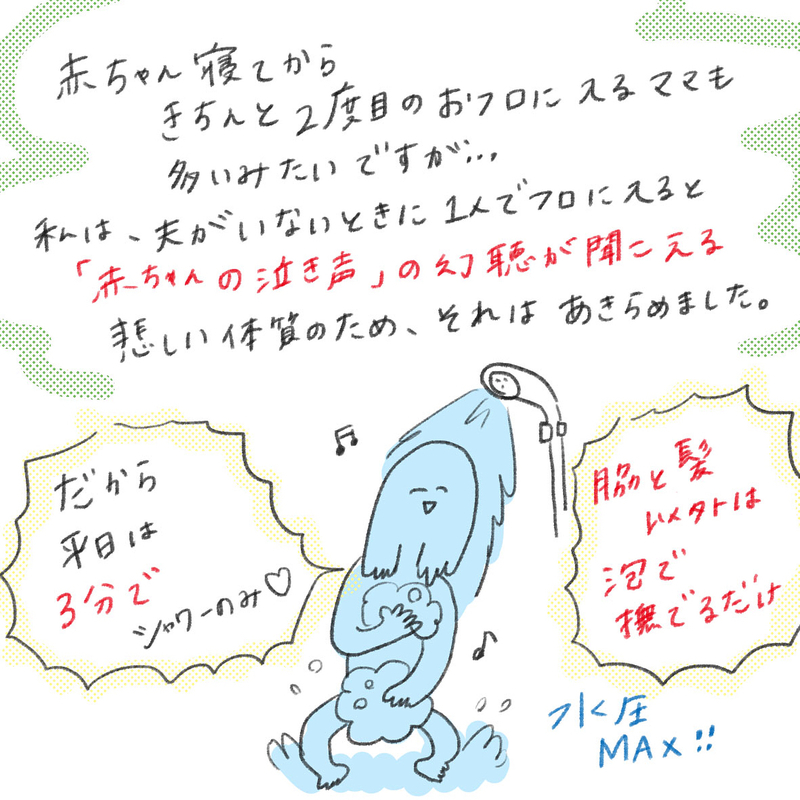 赤ちゃん寝てから
きちんと2度目のおフロに入るママも
多いみたいですが...
私は、夫がいないときに1人でフロに入ると
「赤ちゃんの泣き声」の幻聴が聞こえる
悲しい体質のため、それはあきらめました。
だから
平日は
3分で
シャワーのみ♡
脇と髪
以外は
泡で
撫でるだけ
水圧
MAX!!